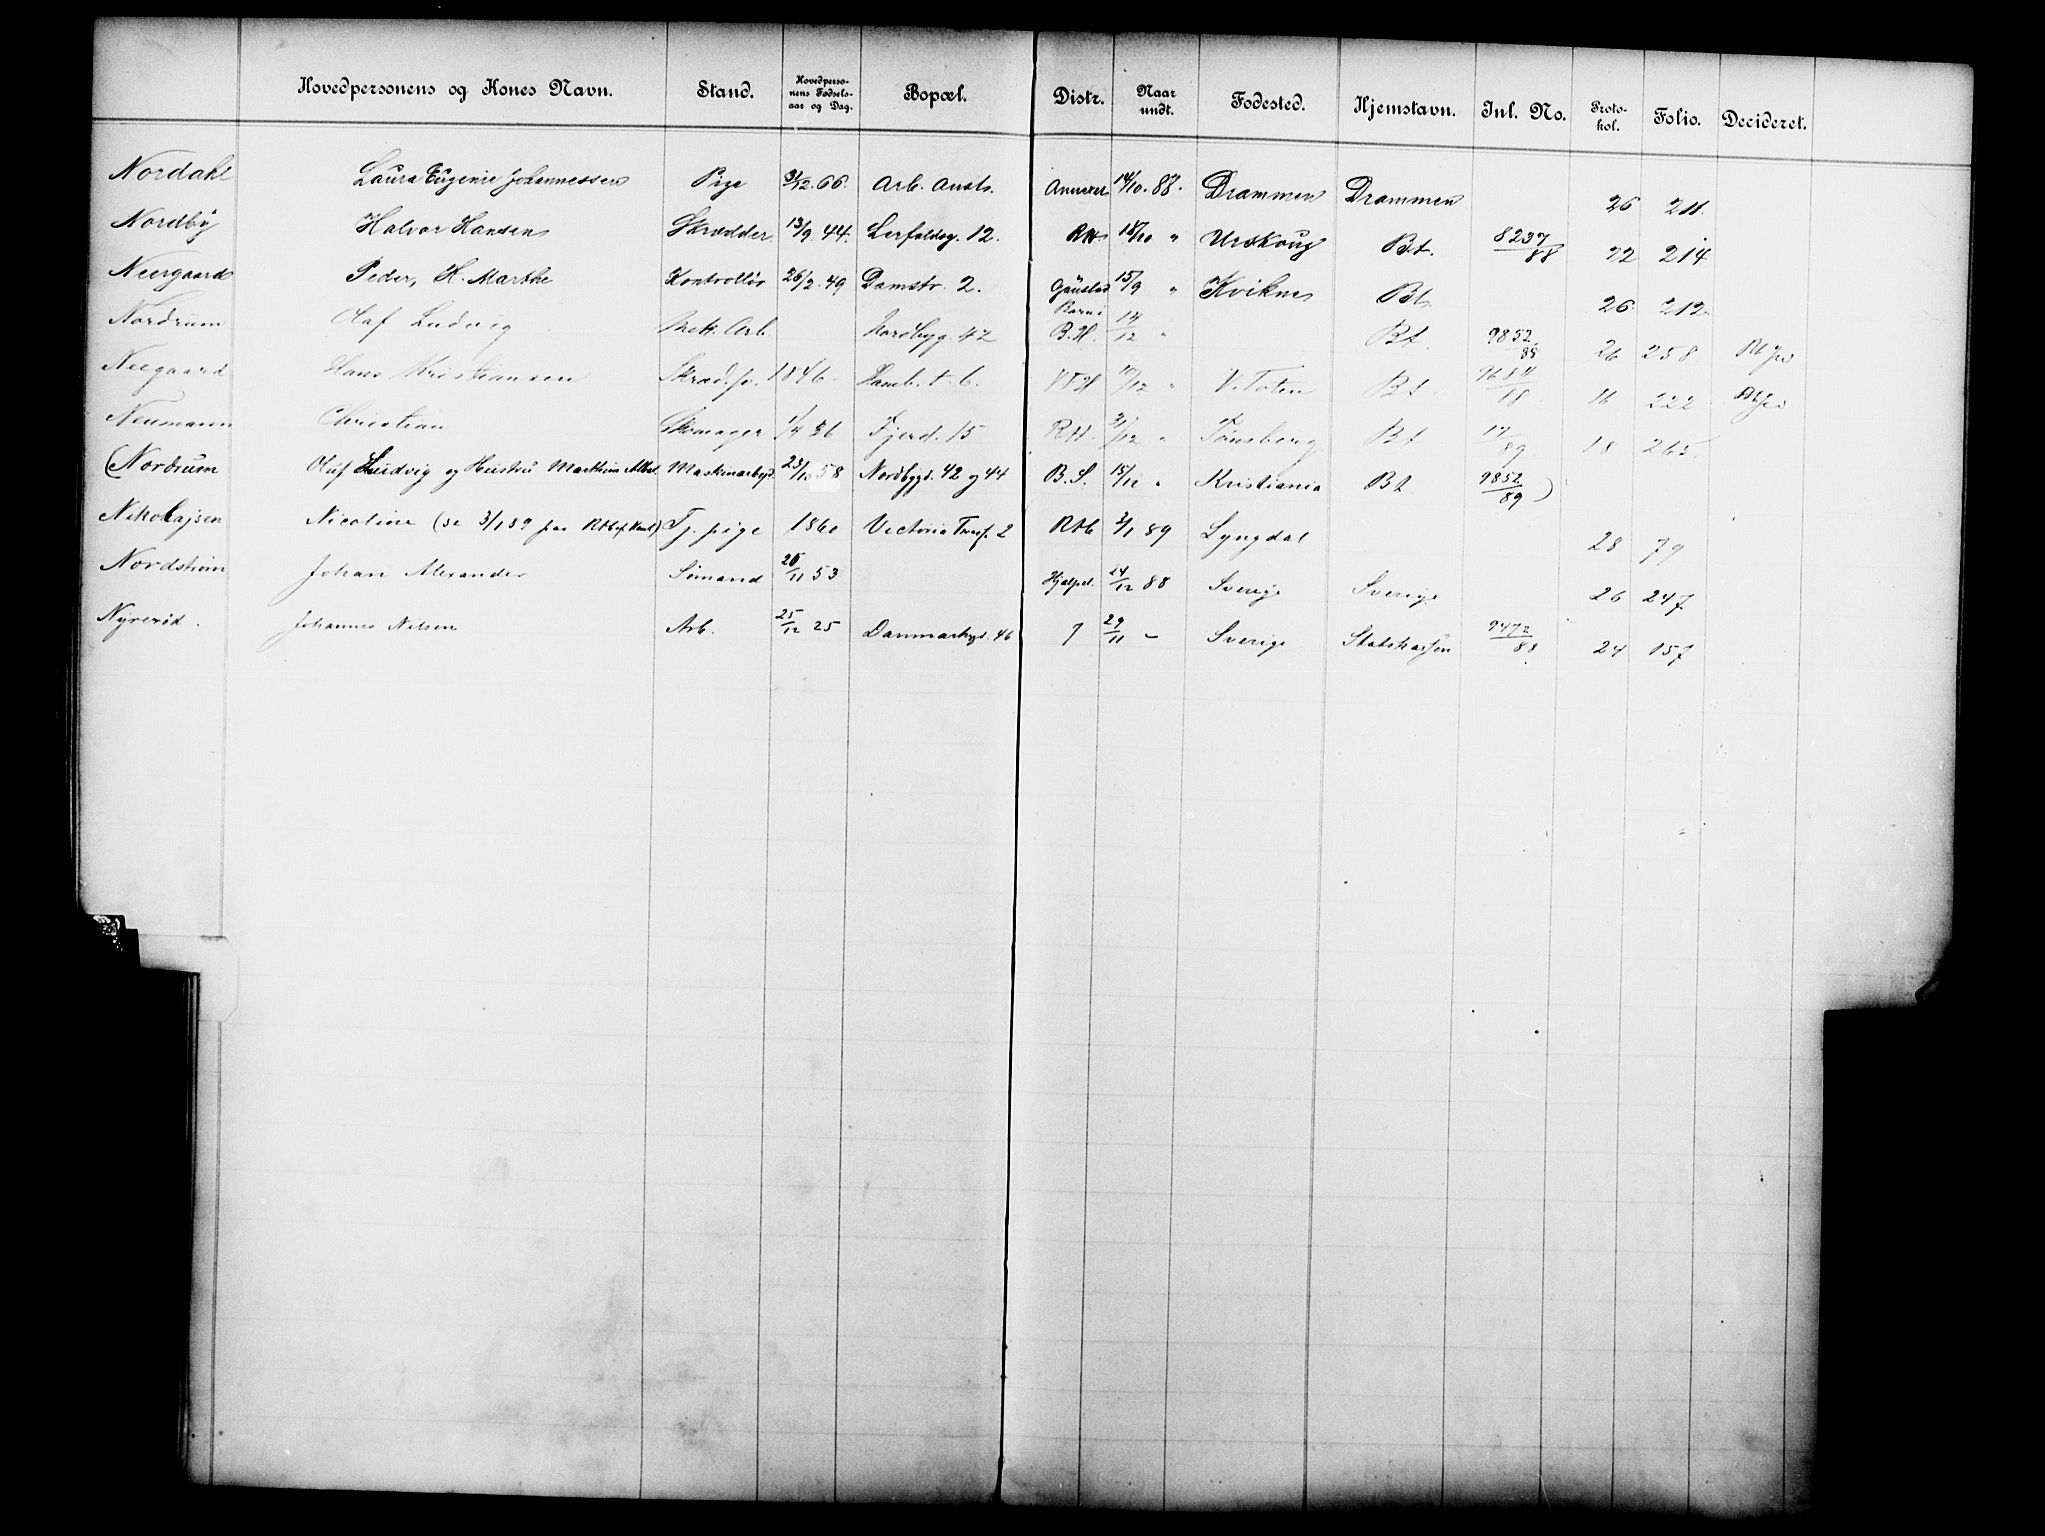 Hovedpersonens og Kones Navn. Stand. Hovedpersonens Fødselsaar og Dag. Bopæl. Distr. Naar undt. Fødested. Hjemstavn. Inl. No. Protokol. Folio. Decideret.
Nordahl Laura Eugenie Johannessen Pige 31/12. 66. Arb. Anst. 14/10. 88. Drammen Drammen 26 211.
Nordby Halvor Hansen Skrædder 13/9. 44. Lerfaldsg. 12. RH 15/10 " Urskoug Bt. 8237/88 22 214
Neergaard Peder, H. Marthe Kontrollør 26/2. 49 Damstr. 2. Gaustad 15/9 " Kvikne Bt. 26 212.
Nordrum Olaf Ludvig Mek. Arb. Nordbyg. 42 B.H. 14/12 " Bt. 9852/88 26 258
Neegaard Hans Kristiansen Skræd. 1846. Hamb. t. 6. VFH 10/12 " V. Toten Bt 9684/88 16 222
Neumann Christian Skomager 1/4 36 Fjerd. 15 RH. 21/12 " Tønsberg Bt 17/89 18 265.
(Nordrum Oluf Ludvig og Hustru Marthine Maskinarbejd. 23/10 58 Nordbygd. 42 og 44 B.S. 15/12 " Kristiania Bt 9852/89 )
Nikolajsen Nicoline (se 3/1 89 paa Tj. pige 1860 Victoria Terrs. 2 RH 3/1 89 Lyngdal 28 79
Nordstrøm Johan Alexander Sømand 26/11 53 Hjælpel. 24/12 88 Sverige Sverige 26 247
Nyrerød. Johannes Nilsen Arb. 25/12 25 Danmarksgd. 46 7 29/11 - Sverige Statskassen 9472/88. 24 157